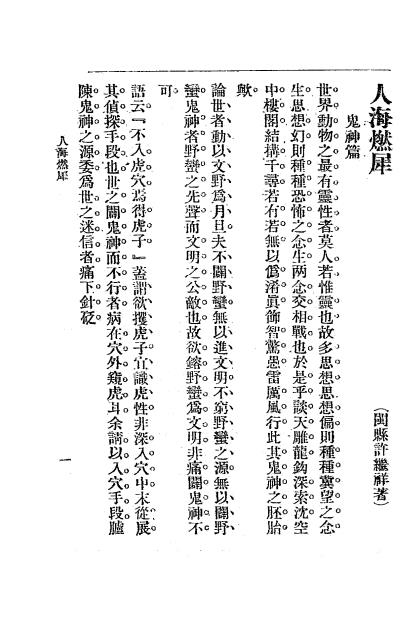 人海燃犀
鬼神篇
(閩縣許繼祥著)
世界動物之最有靈性者莫人若惟靈也故多思想思想偏則種種冀望之念
生思想幻則種種恐怖之念生兩念交相戰也於是乎談天雕龍鈎深索沈空
中樓閣結構千尋若有若無以僞淆眞飾智驚愚雷厲風行此其鬼神之胚胎
歟
論世者動以文野爲月旦夫不闢野蠻無以進文明不窮野蠻之源無以闢野
蠻鬼神者野蠻之先聲而文明之公敵也故欲鎔野蠻爲文明非痛闢鬼神不
可
語云『不入虎穴焉得虎子』蓋謂欲攫虎子宜識虎性非深入穴中末從展
其偵探手段也世之闢鬼神而不行者病在穴外窺虎耳余請以入穴手段臚
陳鬼神之源委爲世之迷信者痛下針砭
人海燃犀
一